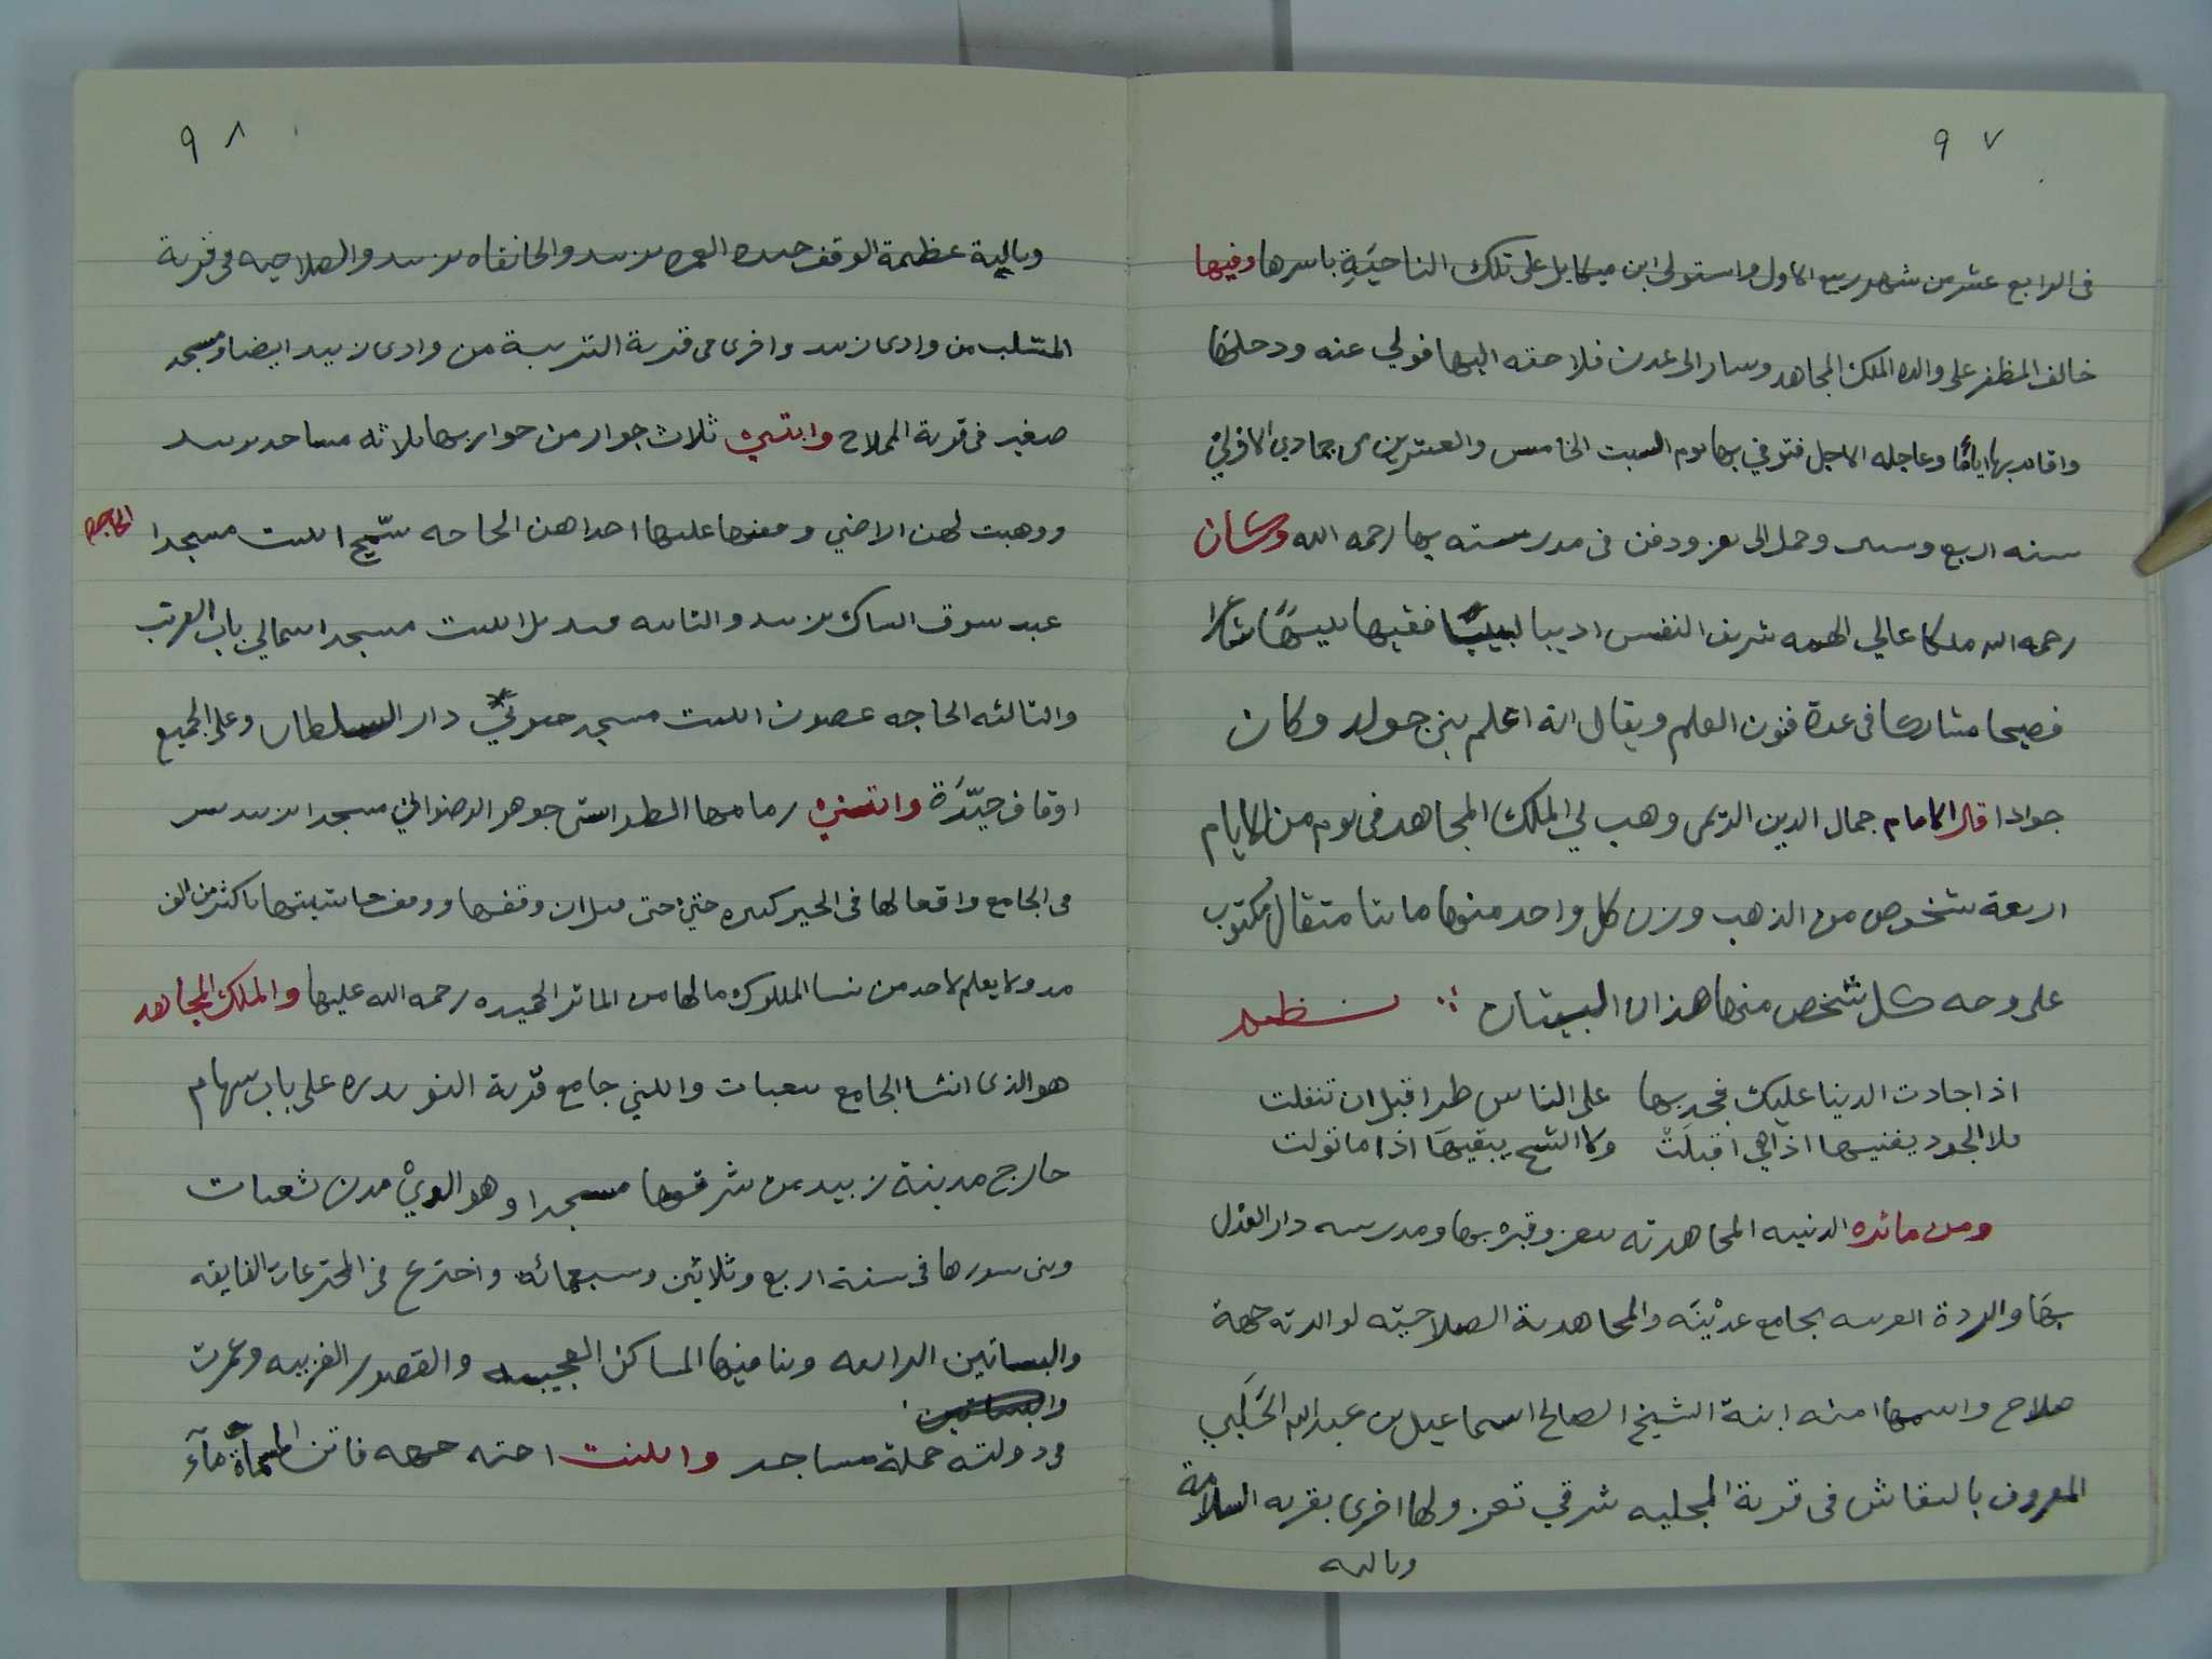 ٩٧
فى الرابع عشر من شهر ربيع الاول واستولى ابن ميكايل على تلك الناحيَةِ باسرها وفيها
خالف المظفر على والده الملك المجاهد وسار الى عدن فلاحقه اليها فولي عنه ودخلهَا
واقام بها ايامًا وعاجله الاجل فتوفي بها يوم السبت الخامس والعشرين من جمادى الاولى
سنه اربع وستين وحمل الى تعز ودفن فى مدرسته بها رحمه الله وكان
رحمه الله ملكا عالي الهمه شريف النفس اديبا لبيبًا فقيها نبيهًا شاعرا
فصيحا مشاركا فى عدة فنون العلم ويقال انه اعلم بني رسول وكان
جوادا قال الامام جمال الدين الريمى وهب لي الملك المجاهد فى يوم من الايام
اربعة شخوص من الذهب وزن كل واحد منها مائتا مثقال مكتوب
على وجه كل شخص منها هذان البيتان نظم
اذا جادت الدنيا عليك فجد بها على الناس طرا قبل ان تتفلت
فلا الجود يفنيها اذا هي اقبلَتْ ولا الشح يبقيهَا اذا ما تولت
ومن ماثره الدينيه المجاهديه بتعز وقبره بها ومدرسه دار العدْل
بهَا والزيادة الغربيه بجامع عدَيْنَه والمجاهدية الصلاحيّه لوالدته جهة
صلاح واسمها امنه ابنة الشيخ الصالح اسماعيل بن عبد الله الحَلَبي
المعروف بالنقاش فى قرية المجليه شرقي تعز ولها اخرى بقريه السلامة
وباليه
٩٨
وباليه عظيمة الوقف جيده العمره بزبيد والخانقاه بزبيد والصلاحيه فى قرية
المسلب من وادى زبيد واخرى فى قرية التريبة من وادى زبيد ايضا ومسجد
صغير فى قرية المملاح وابتنى ثلاث جوار من جواريها ثلاثه مساجد بزبيد
ووهبت لهن الاراضي ووقفنها عليها احداهن الحاجه سمّح ابتنت مسجدا الحاجه
عند سوق بزبيد والثانيه قنديل ابتنت مسجدا شمالي باب القرتب
والثالثه الحاجه غصون ابتنت مسجد دار السلطان وعلى الجميع
اوقاف جيّدَة وابتنى زمامها الطواشى جوهر الرضواني مسجدا بزبيد
فى الجامع وافعالها فى الخير كثيره حتى حتى قيل ان وقفها ووقف حاشيتها باكثر من الف
مد ولا يعلم لاحد من نسا الملوك مالها من الماثر الحميده رحمه الله عليها والملك المجاهد
هو الذى انشا الجامع بثعبات وابتنى جامع قرية النويدره على باب سهام
خارج مدينة زبيد من شرقيها مسجدا وهو الذيْ مدن ثعبات
وبنى سورها فى سنة اربع وثلاثين وسبعمائه واخترع فى المخترعات الفايقه
والبساتين الرايعه وبنا فيها المساكن العجيبه والقصور الغريبه وعمرت
والبساتين
فى دولته جملة مساجد وابتنت اخته جهه فاتن المسماة مآء